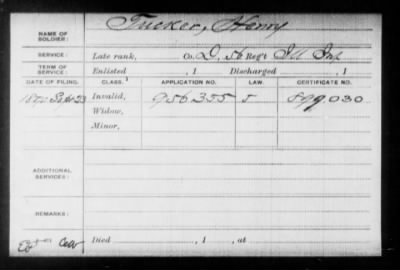 NAME OF SOLDIER: Tucker, Henry
SERVICE: Late rank, Co. D, 56 Reg't Ill Inf
TERM OF SERVICE: Enlisted , 1 Discharged , 1
DATE OF FILING. CLASS. APPLICATION NO. LAW. CERTIFICATE NO.
Invalid, 956355 899,030
Widow,
Minor,
ADDITIONAL SERVICES:
REMARKS:
Died , 1 , at